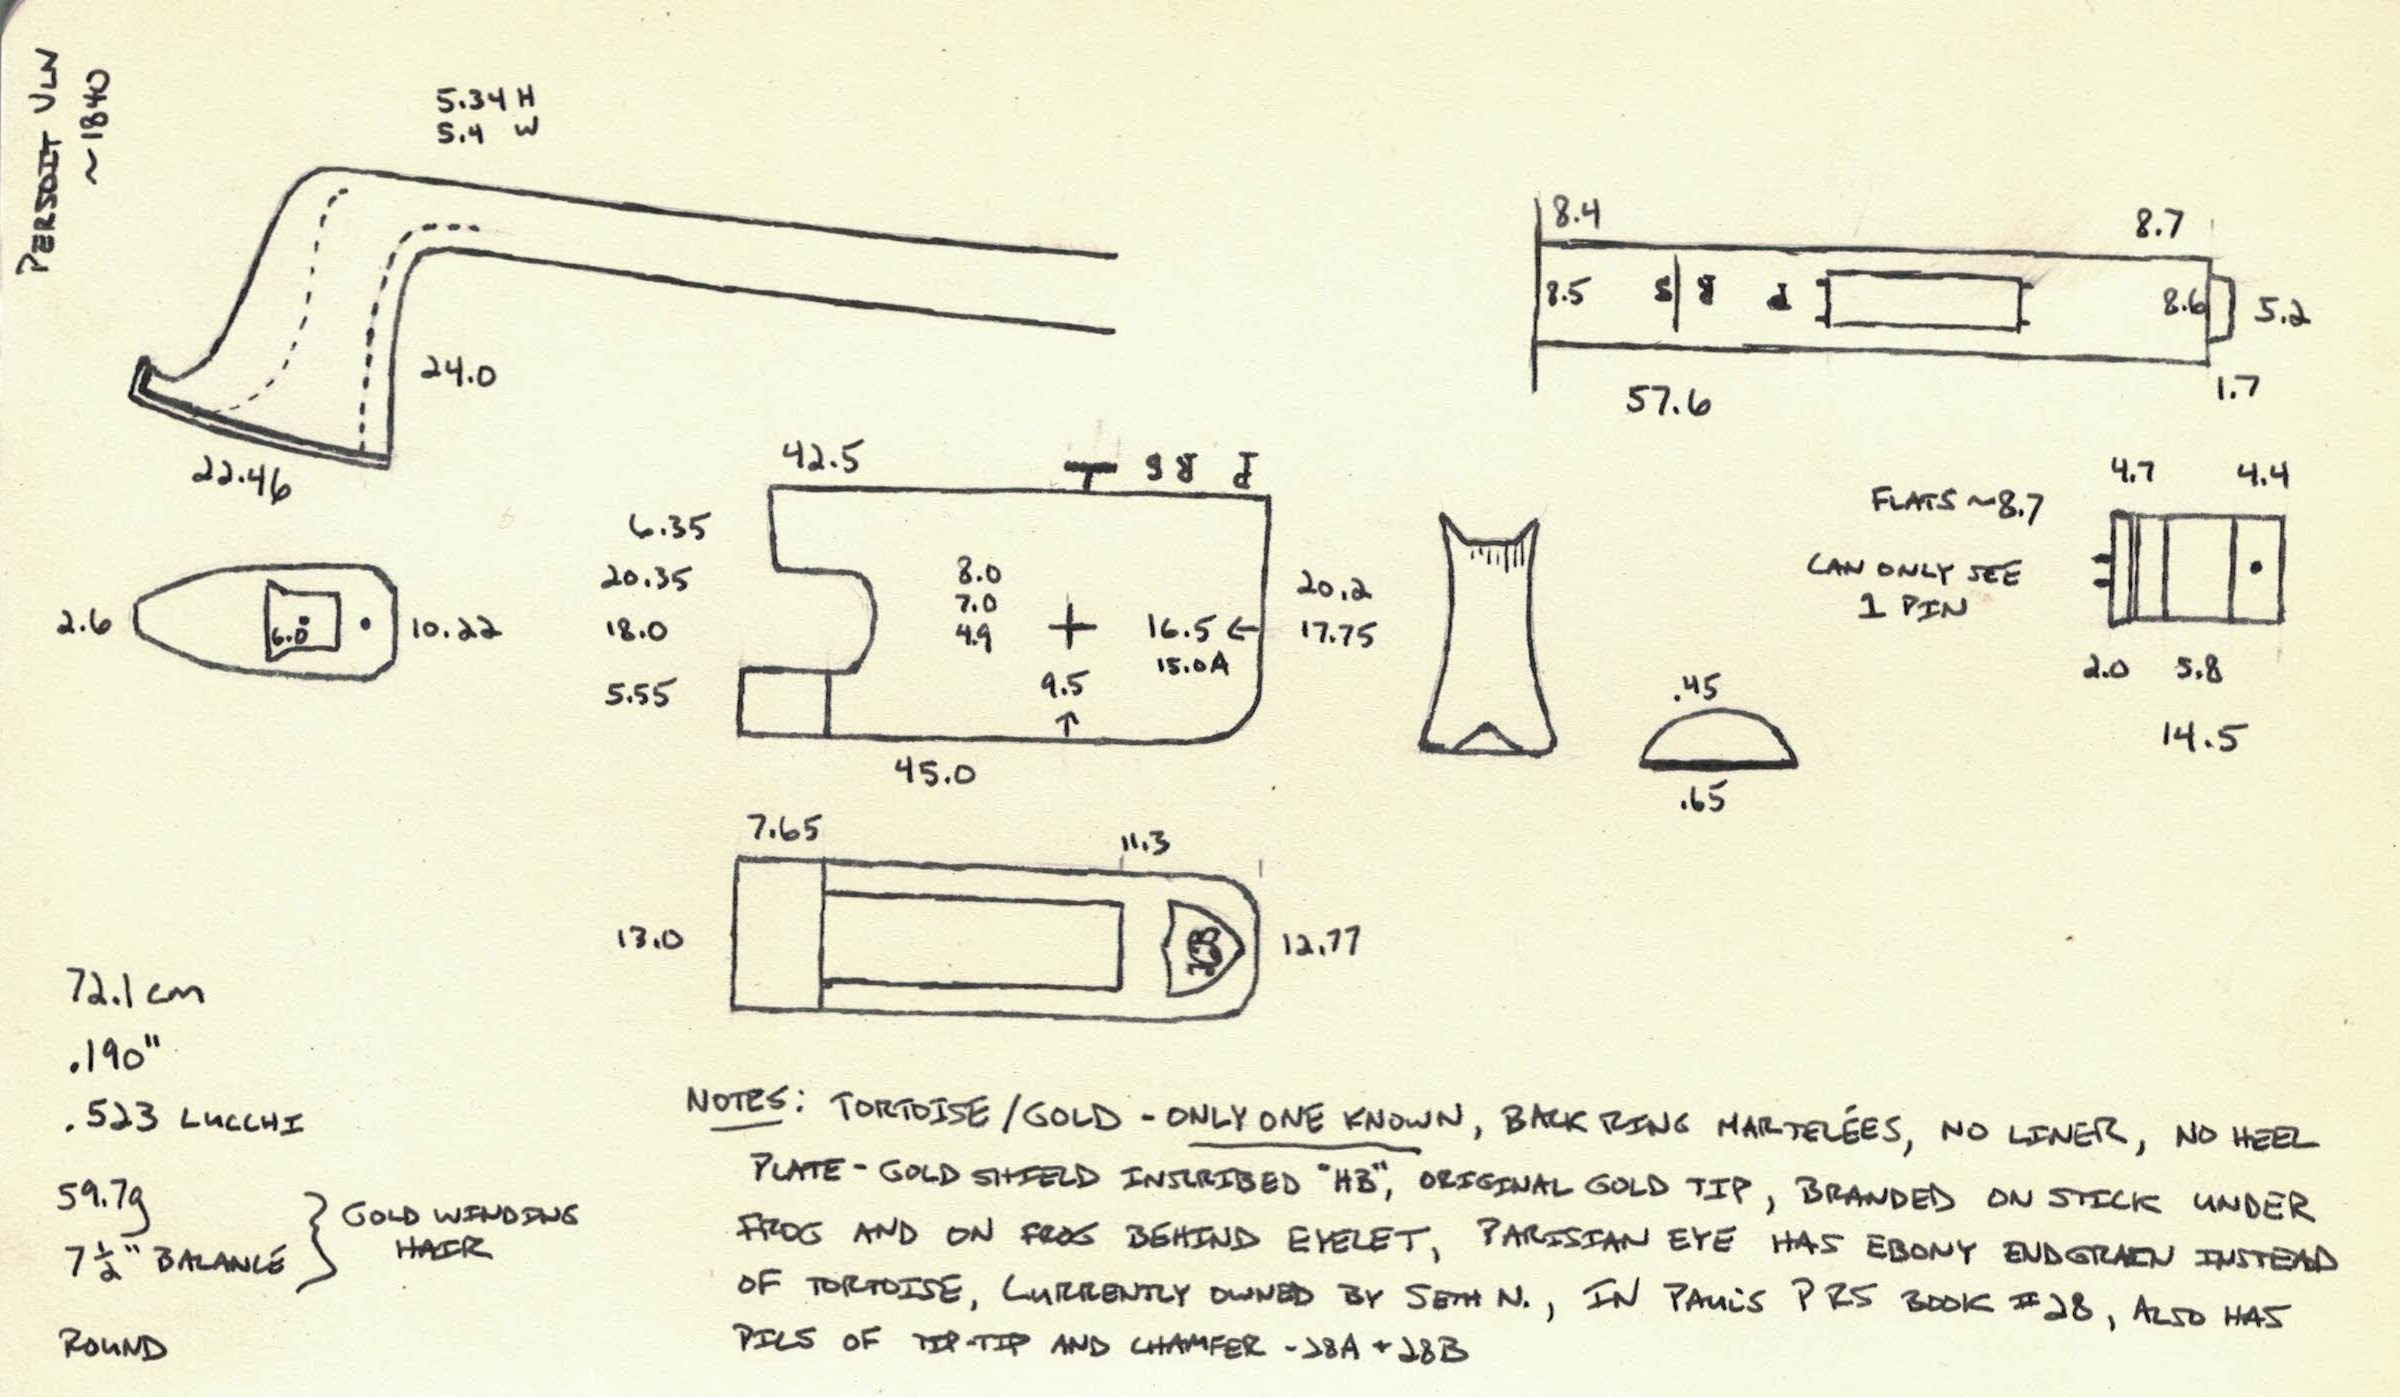 PERSOIT VLN
~1840
5.34 H
5.4 W
24.0
22.46
8.4
8.7
8.5
S
R
P
8.6
5.2
57.6
1.7
42.5
S R P
6.35
20.35
18.0
5.55
8.0
7.0
4.9
16.5 ←
15.0A
9.5
↑
20.2
17.75
45.0
2.6
6.0
10.22
FLATS ~8.7
CAN ONLY SEE
1 PIN
4.7
4.4
2.0
5.8
14.5
.45
.65
7.65
11.3
13.0
HB
12.77
72.1 cm
.190"
.523 LUCCHI
59.7g
7 ½" BALANCE
GOLD WINDING
HAIR
ROUND
NOTES: TORTOISE/GOLD - ONLY ONE KNOWN, BACK RING MARTELÉES, NO LINER, NO HEEL
PLATE - GOLD SHIELD INSCRIBED "HB", ORIGINAL GOLD TIP, BRANDED ON STICK UNDER
FROG AND ON FROG BEHIND EYELET, PARISIAN EYE HAS EBONY ENDGRAIN INSTEAD
OF TORTOISE, CURRENTLY OWNED BY SETH N., IN PAUL'S PRS BOOK #28, ALSO HAS
PICS OF TIP-TIP AND CHAMFER - 28A + 28B